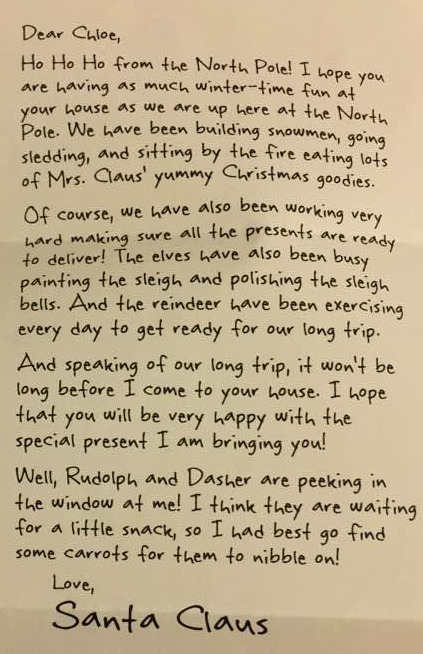 Dear Chloe,
Ho Ho Ho from the North Pole! I hope you
are having as much winter-time fun at
your house as we are up here at the North
Pole. We have been building snowmen, going
sledding, and sitting by the fire eating lots
of Mrs. Claus' yummy Christmas goodies.
Of course, we have also been working very
hard making sure all the presents are ready
to deliver! The elves have also been busy
painting the sleigh and polishing the sleigh
bells. And the reindeer have been exercising
every day to get ready for our long trip.
And speaking of our long trip, it won't be
long before I come to your house. I hope
that you will be very happy with the
special present I am bringing you!
Well, Rudolph and Dasher are peeking in
the window at me! I think they are waiting
for a little snack, so I had best go find
some carrots for them to nibble on!
Love,
Santa Claus